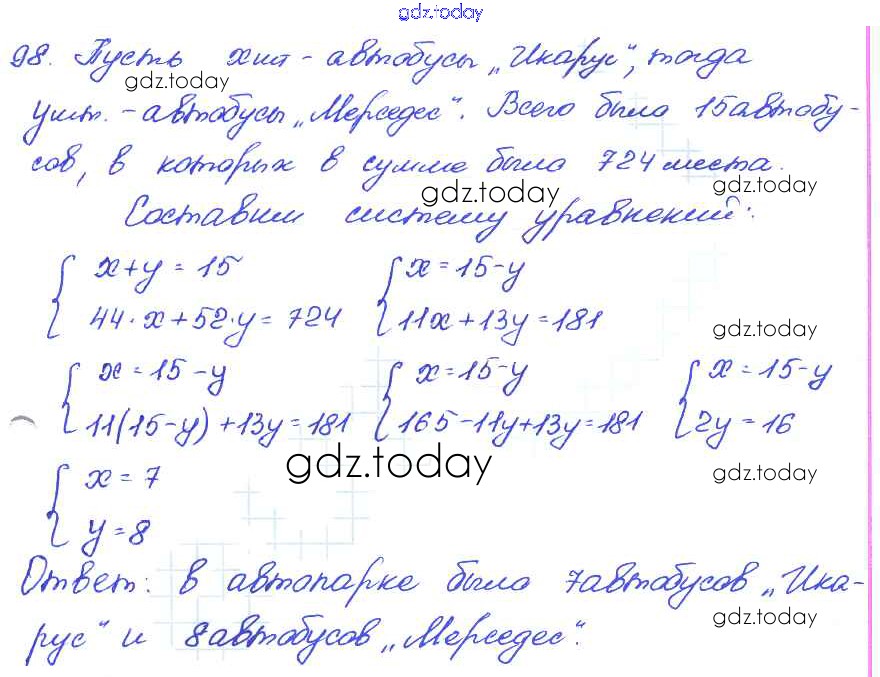 gdz.today
98. Пусть x шт - автобусы „Икарус", тогда
gdz.today
y шт. - автобусы „Мерседес". Всего было 15 автобу-
сов, в которых в сумме было 724 места.
gdz.today gdz.today
Составим систему уравнений:
{ x+y = 15 { x = 15-y
44·x+52·y = 724 11x+13y = 181
gdz.today
{ x = 15-y { x = 15-y { x = 15-y
11(15-y)+13y = 181 165-11y+13y = 181 2y = 16
gdz.today gdz.today
{ x = 7
y = 8
Ответ: в автопарке было 7 автобусов „Ика-
рус" и 8 автобусов „Мерседес".
gdz.today